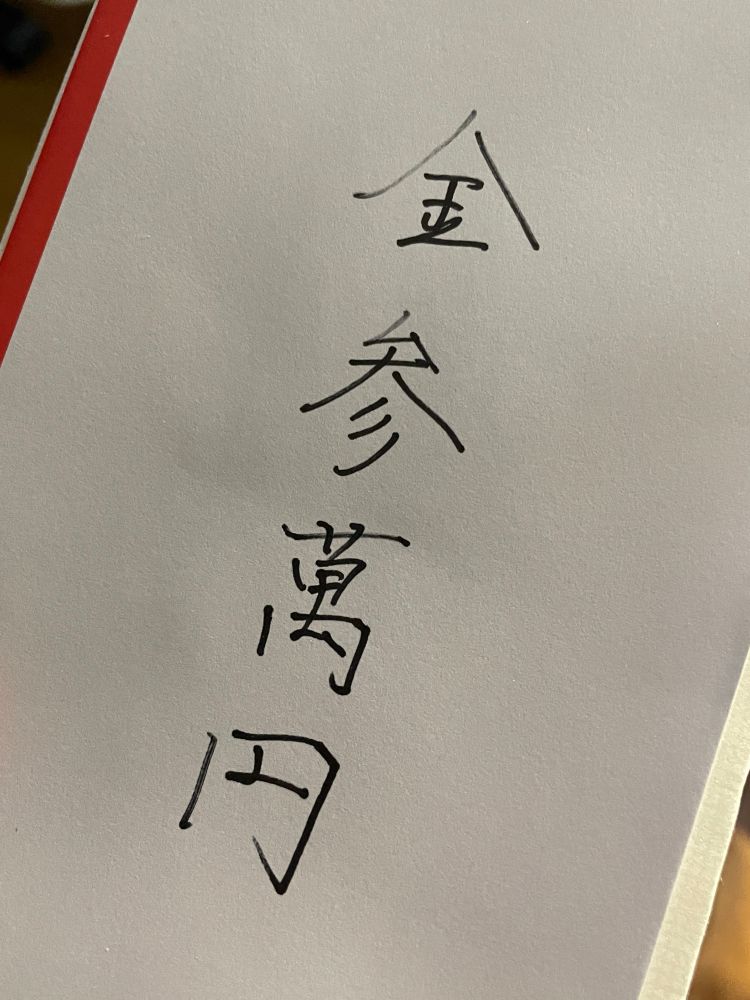 金参萬円